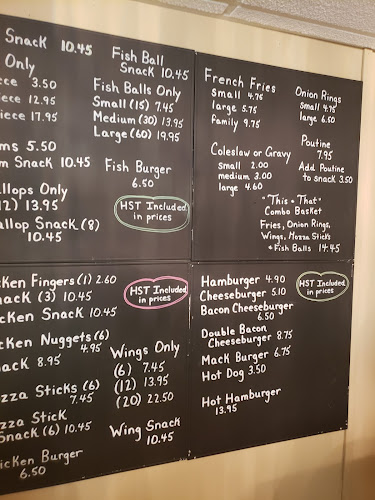 Snack 10.45
Only
3.50
12.95
17.95
5.50
Snack 10.45
Only
(12) 13.95
Snack (8)
10.45
Fish Ball
Snack 10.45
Fish Balls Only
Small (15) 7.45
Medium (30) 13.95
Large (60) 19.95
Fish Burger
6.50
HST Included
in prices
French Fries
small 4.75
large 5.75
family 9.75
Onion Rings
small 4.75
large 6.50
Coleslaw or Gravy
small 2.00
medium 3.00
large 4.60
Poutine
7.95
Add Poutine
to snack 3.50
"This & That"
Combo Basket
Fries, Onion Rings,
Wings, Mozza Sticks
& Fish Balls 14.45
Fingers (1) 2.60
(3) 10.45
Snack 10.45
Nuggets (6)
4.95
8.95
Sticks (6)
7.45
Stick
Snack (6) 10.45
Burger
6.50
HST Included
in prices
Wings Only
(6) 7.45
(12) 13.95
(20) 22.50
Wing Snack
10.45
Hamburger 4.90
Cheeseburger 5.10
Bacon Cheeseburger
6.50
Double Bacon
Cheeseburger 8.75
Mack Burger 6.75
Hot Dog 3.50
Hot Hamburger
13.95
HST Included
in prices